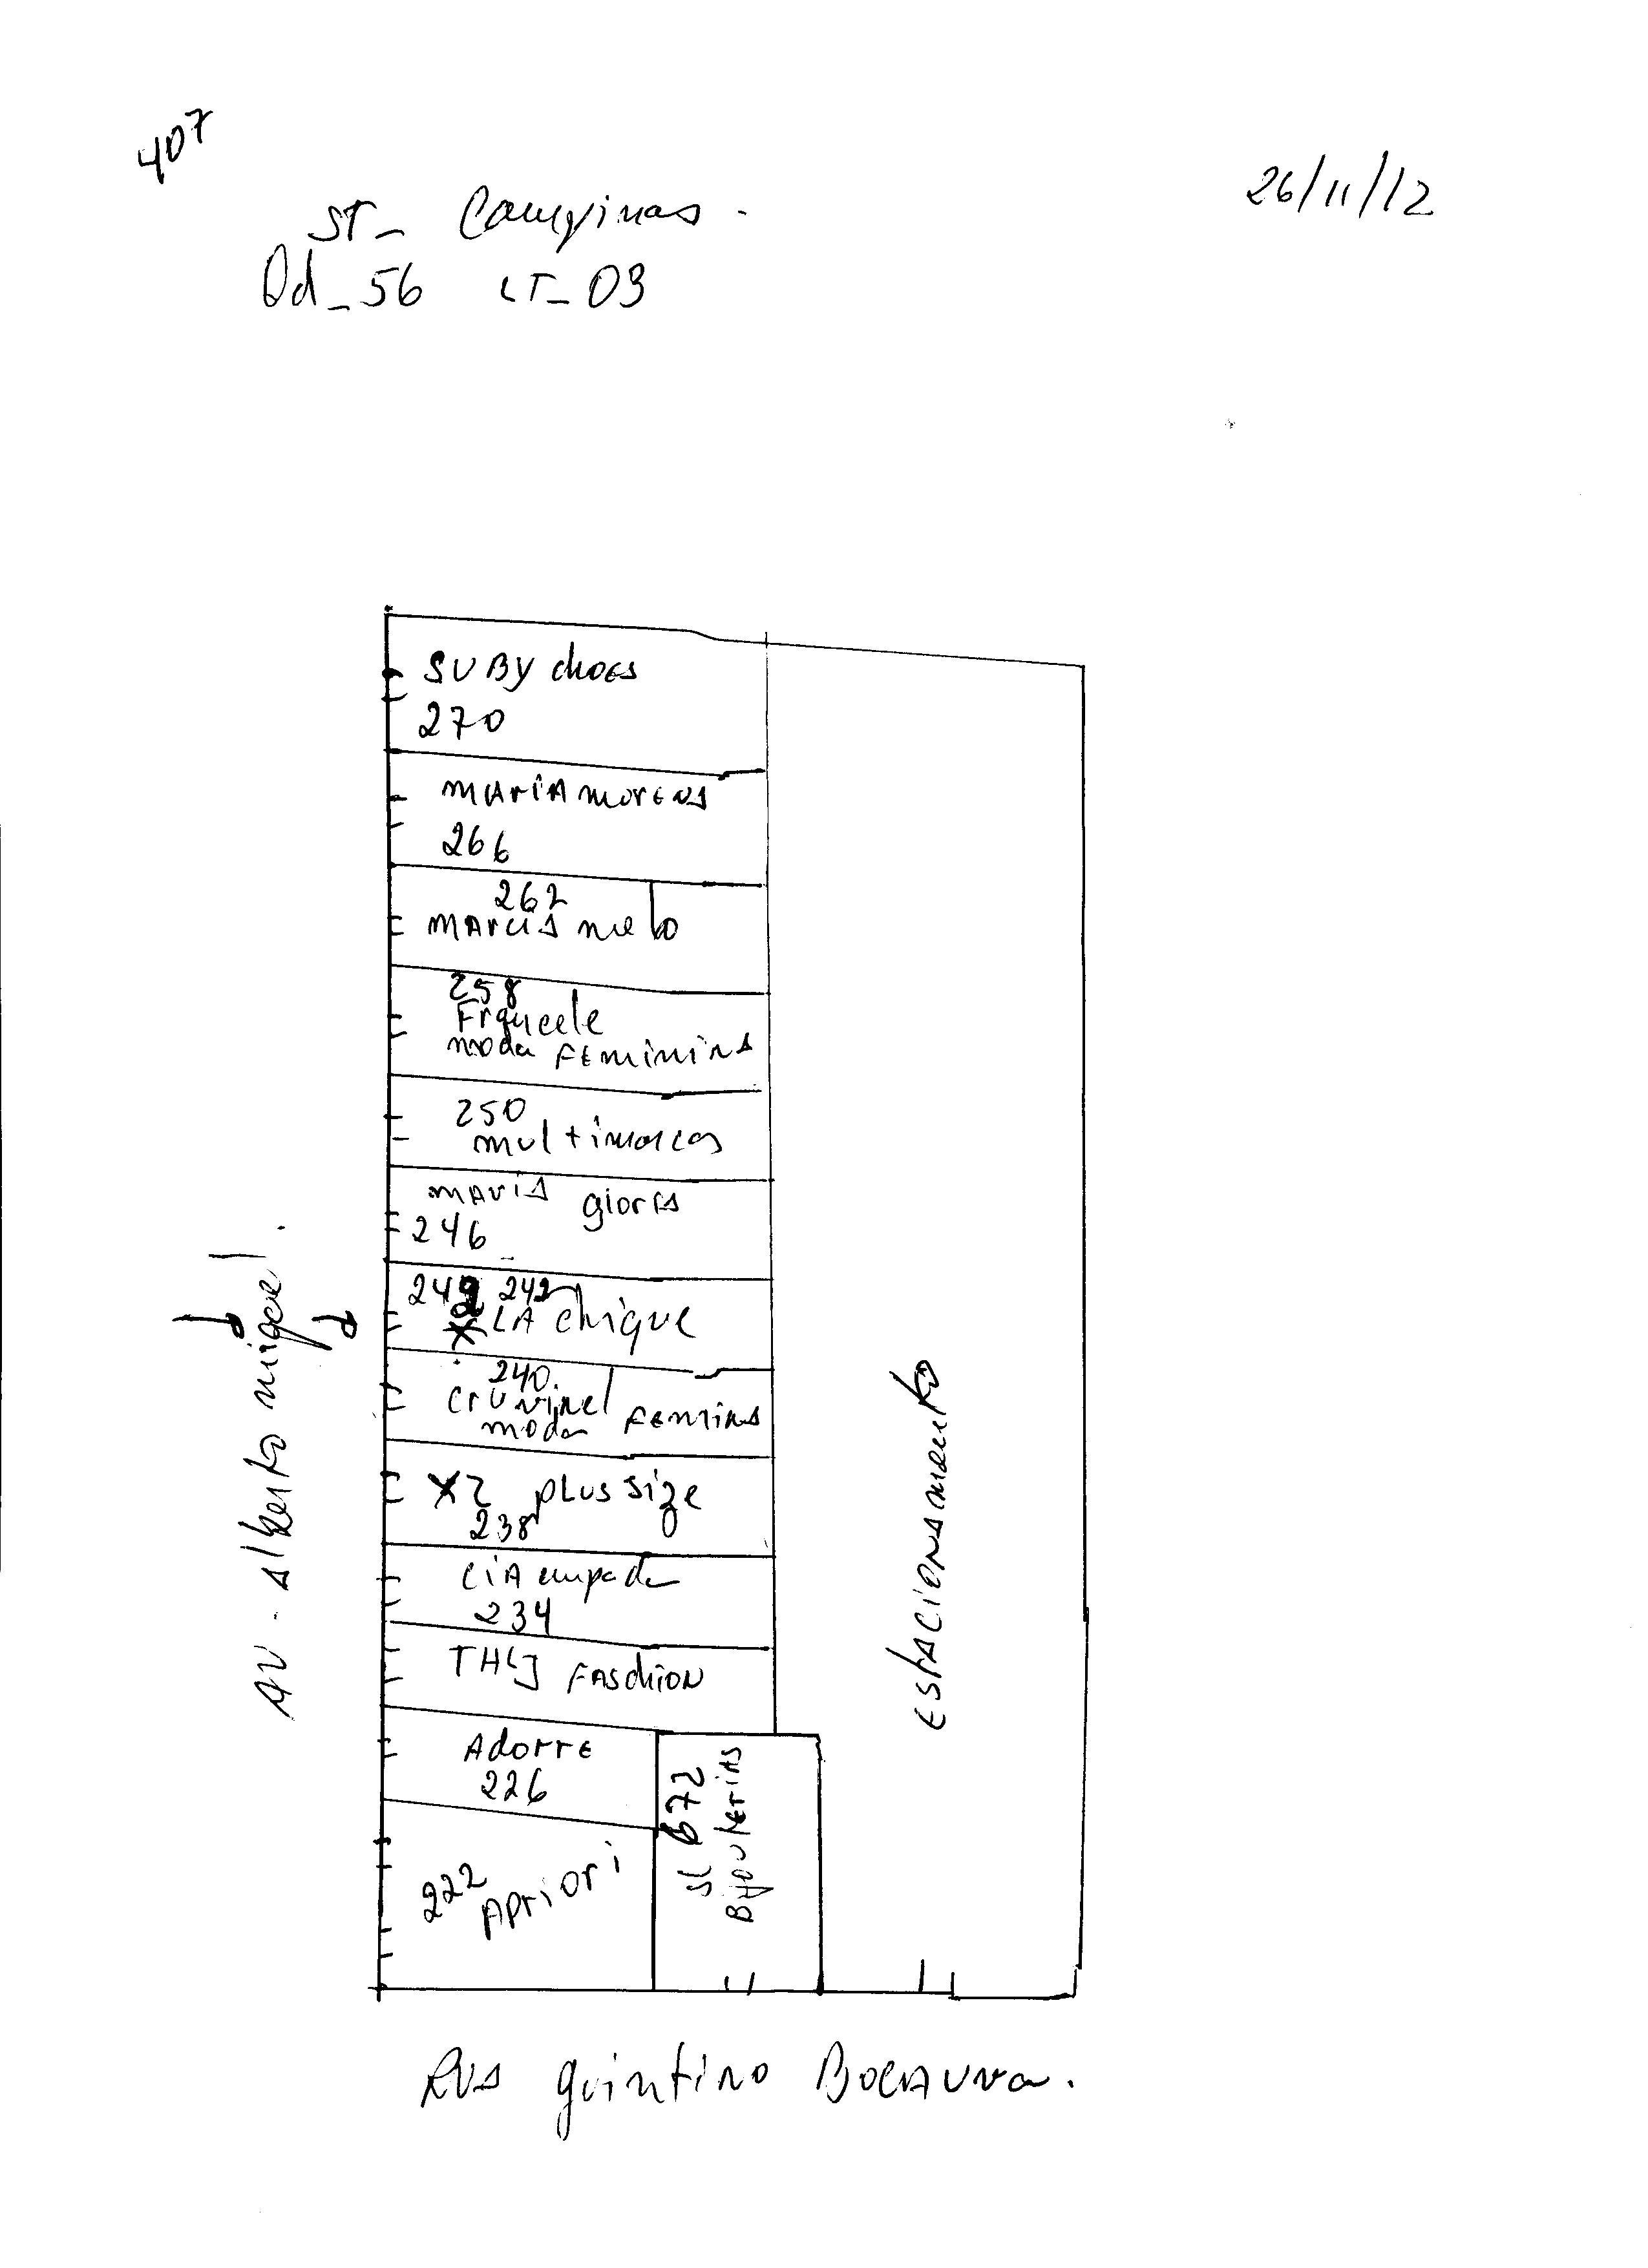 407
26/11/12
ST_ Campinas.
Qd_56 LT_03
SUBY choes
270
MARIA MORENA
266
262
MARCIA melo
258
moda FEMININA
250
multimarcas
MARIA
246
242 242
X LA chique
240
CRUVINEl
moda FEMININA
X2 PLUS SIZE
238
CIA empada
234
THLJ FASCHION
ADORRE
226
222 APriori
SL 672
BIJOUTERIAS
ESTACIONAMENTO
AV - Alberto miguel.
RUA quintino BOCAIUVA.